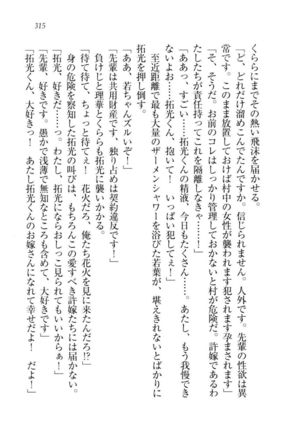 315
くららにまでその熱い飛沫を届かせる。
「ど、どれだけ溜めこんでたんですか。信じられません。人外です。先輩の性欲は異
常です。このまま放置しておけば村中の女性が襲われます犯されます孕まされます」
「そ、そうだ。お前のコレはしっかり管理しておかないと村が危険だ。許嫁であるわ
たしたちが責任持ってこれを隔離しなきゃ……！」
「ああっ、すごい……拓光くんの精液、今日もたくさん……。あたし、もう我慢でき
ないよぉ……拓光くん、抱いて！ いっぱい犯してぇ！」
至近距離で最も大量のザーメンシャワーを浴びた若葉が、堪えきれないとばかりに
拓光を押し倒す。
「ああ、若ちゃんズルいぞ！」
「先輩は共用財産です、独り占めは契約違反です！」
負けじと理華とくららも拓光に襲いかかる。
「待て待て、ちょっと待てぇ！ 花火だろ、俺たち花火を見に来たんだろ!?」
身の危険を察知した拓光の叫びは、もちろんこの愛すべき許嫁たちには届かない。
「拓光、好きだ……っ。わたし、拓光にならおしっこ見られてもいいからぁ！」
「先輩、好きです。愚かで浅薄で無知なところも含めて、大好きです」
「拓光くん、大好きっ！ あたし拓光くんのお嫁さんになれて幸せだよ！ だよ！」